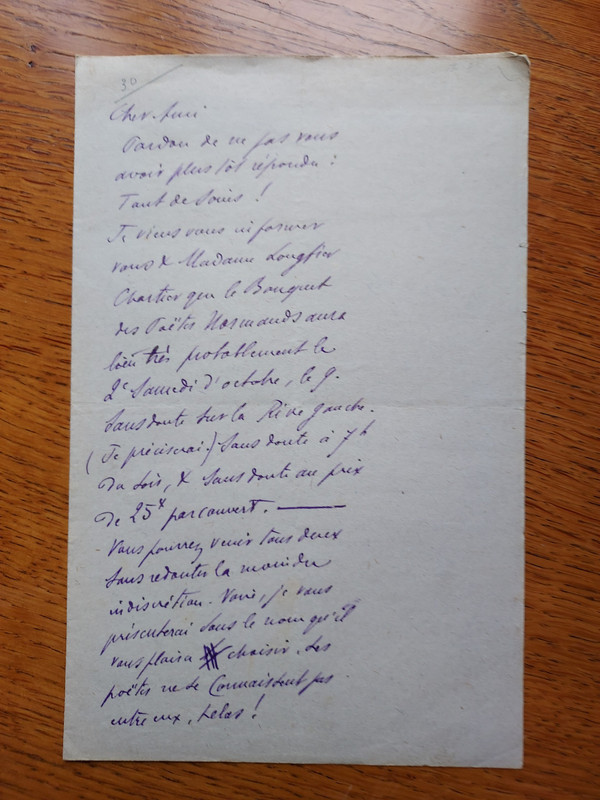 30
Cher Ami
Pardon de ne pas vous
avoir plus tôt répondu :
Tant de soins !
Je viens vous informer
vous & Madame Longfier
Chartier que le Banquet
des Poëtes Normands aura
lieu très probablement le
2e Samedi d'octobre, le 9.
Sans doute sur la Rive gauche.
(Je préciserai.) Sans doute à 7h
du soir, & sans doute au prix
de 25 par couvert. —
- Vous pourrez venir tous deux
sans redouter la moindre
indiscrétion. Vous, je vous
présenterai sous le nom qu'il
vous plaira choisir. Les
poëtes ne se connaissent pas
entre eux, hélas !